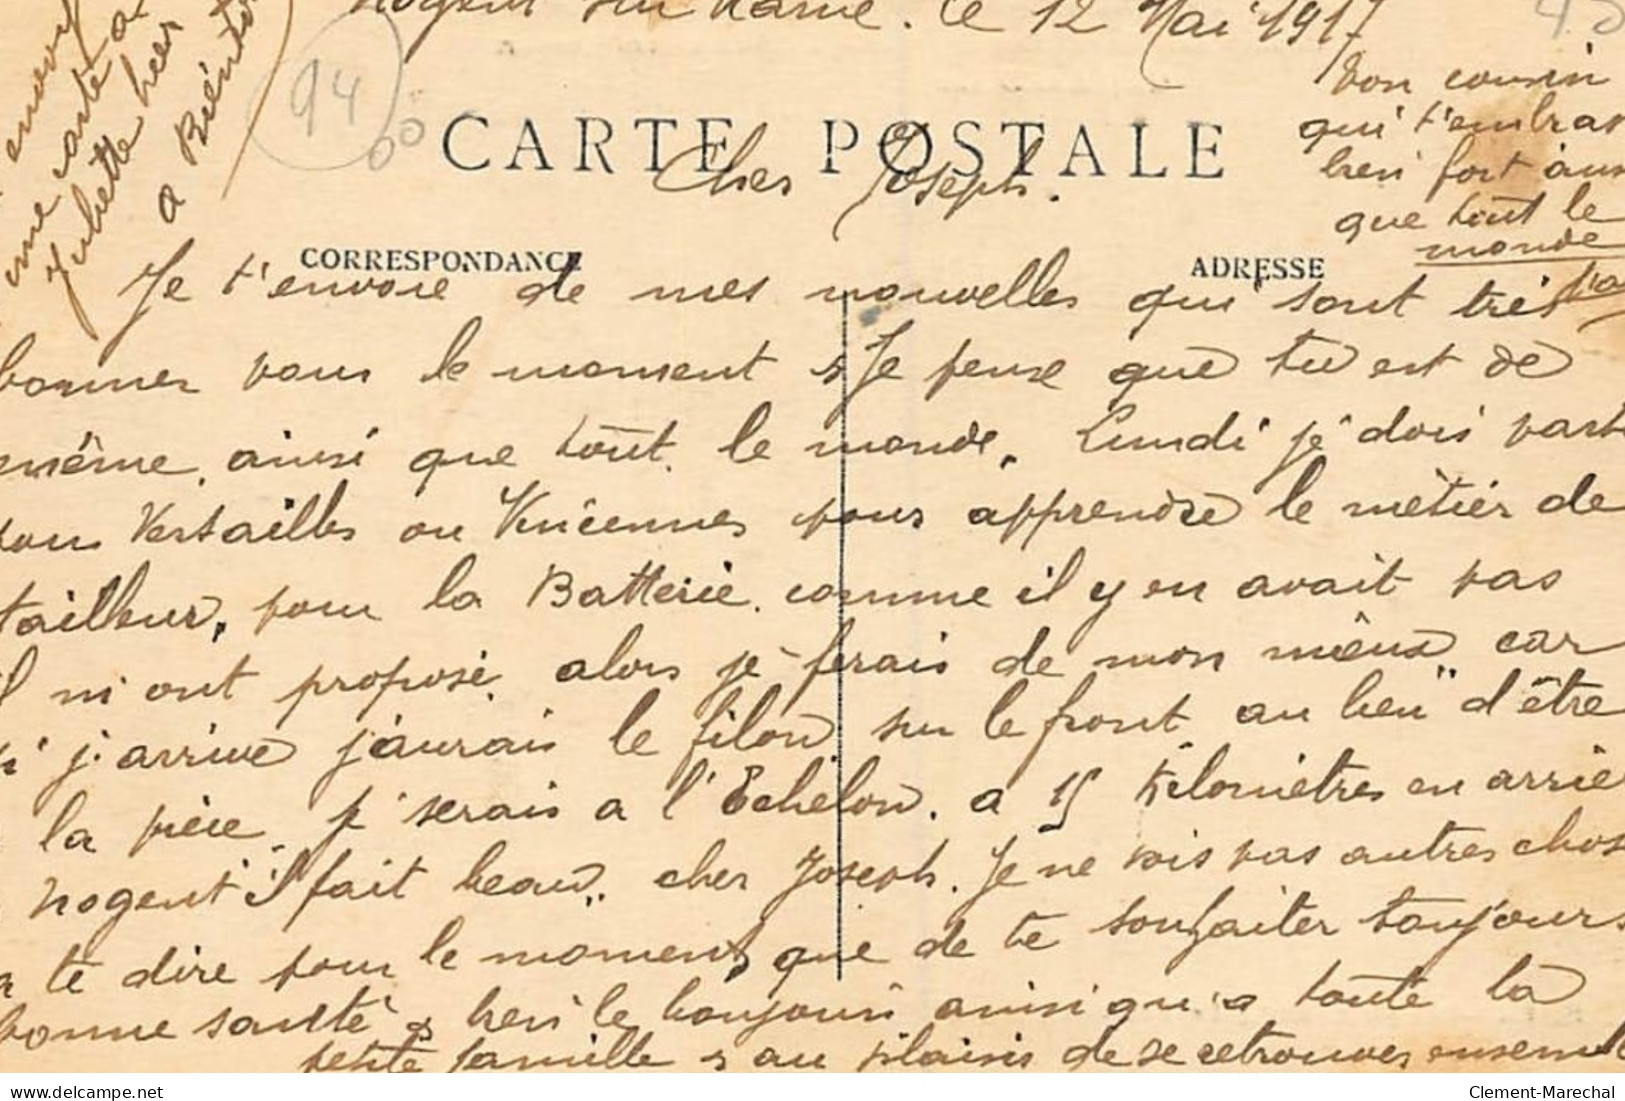 Nogent sur Marne. le 12 Mai 1917
94
CARTE POSTALE
Cher Joseph.
CORRESPONDANCE
ADRESSE
Je t'envoie de mes nouvelles qui sont très
bonnes pour le moment Je pense que tu est de
même. ainsi que tout le monde. Lundi je dois parti
pour Versailles ou Vincennes pour apprendre le métier de
tailleur. pour la Batterie. comme il y en avait pas
il m'ont proposé. alors je ferais de mon mieux car
si j'arrive j'aurais le filon sur le front au lieu d'être
a la pièce. je serais a l'Echelon. a 15 kilomètres en arriè
Nogent il fait beau. cher Joseph. Je ne vois pas autres chos
a te dire pour le moment, que de te souhaiter toujours
bonne santé bien le bonjour ainsi qu'a toute la
petite famille au plaisir de se retrouver ensemble
Ton cousin
qui t'embras
bien fort ains
que tout le
monde
envoy
une carte a
Juliette hier
a Bientot
Clement-Marechal